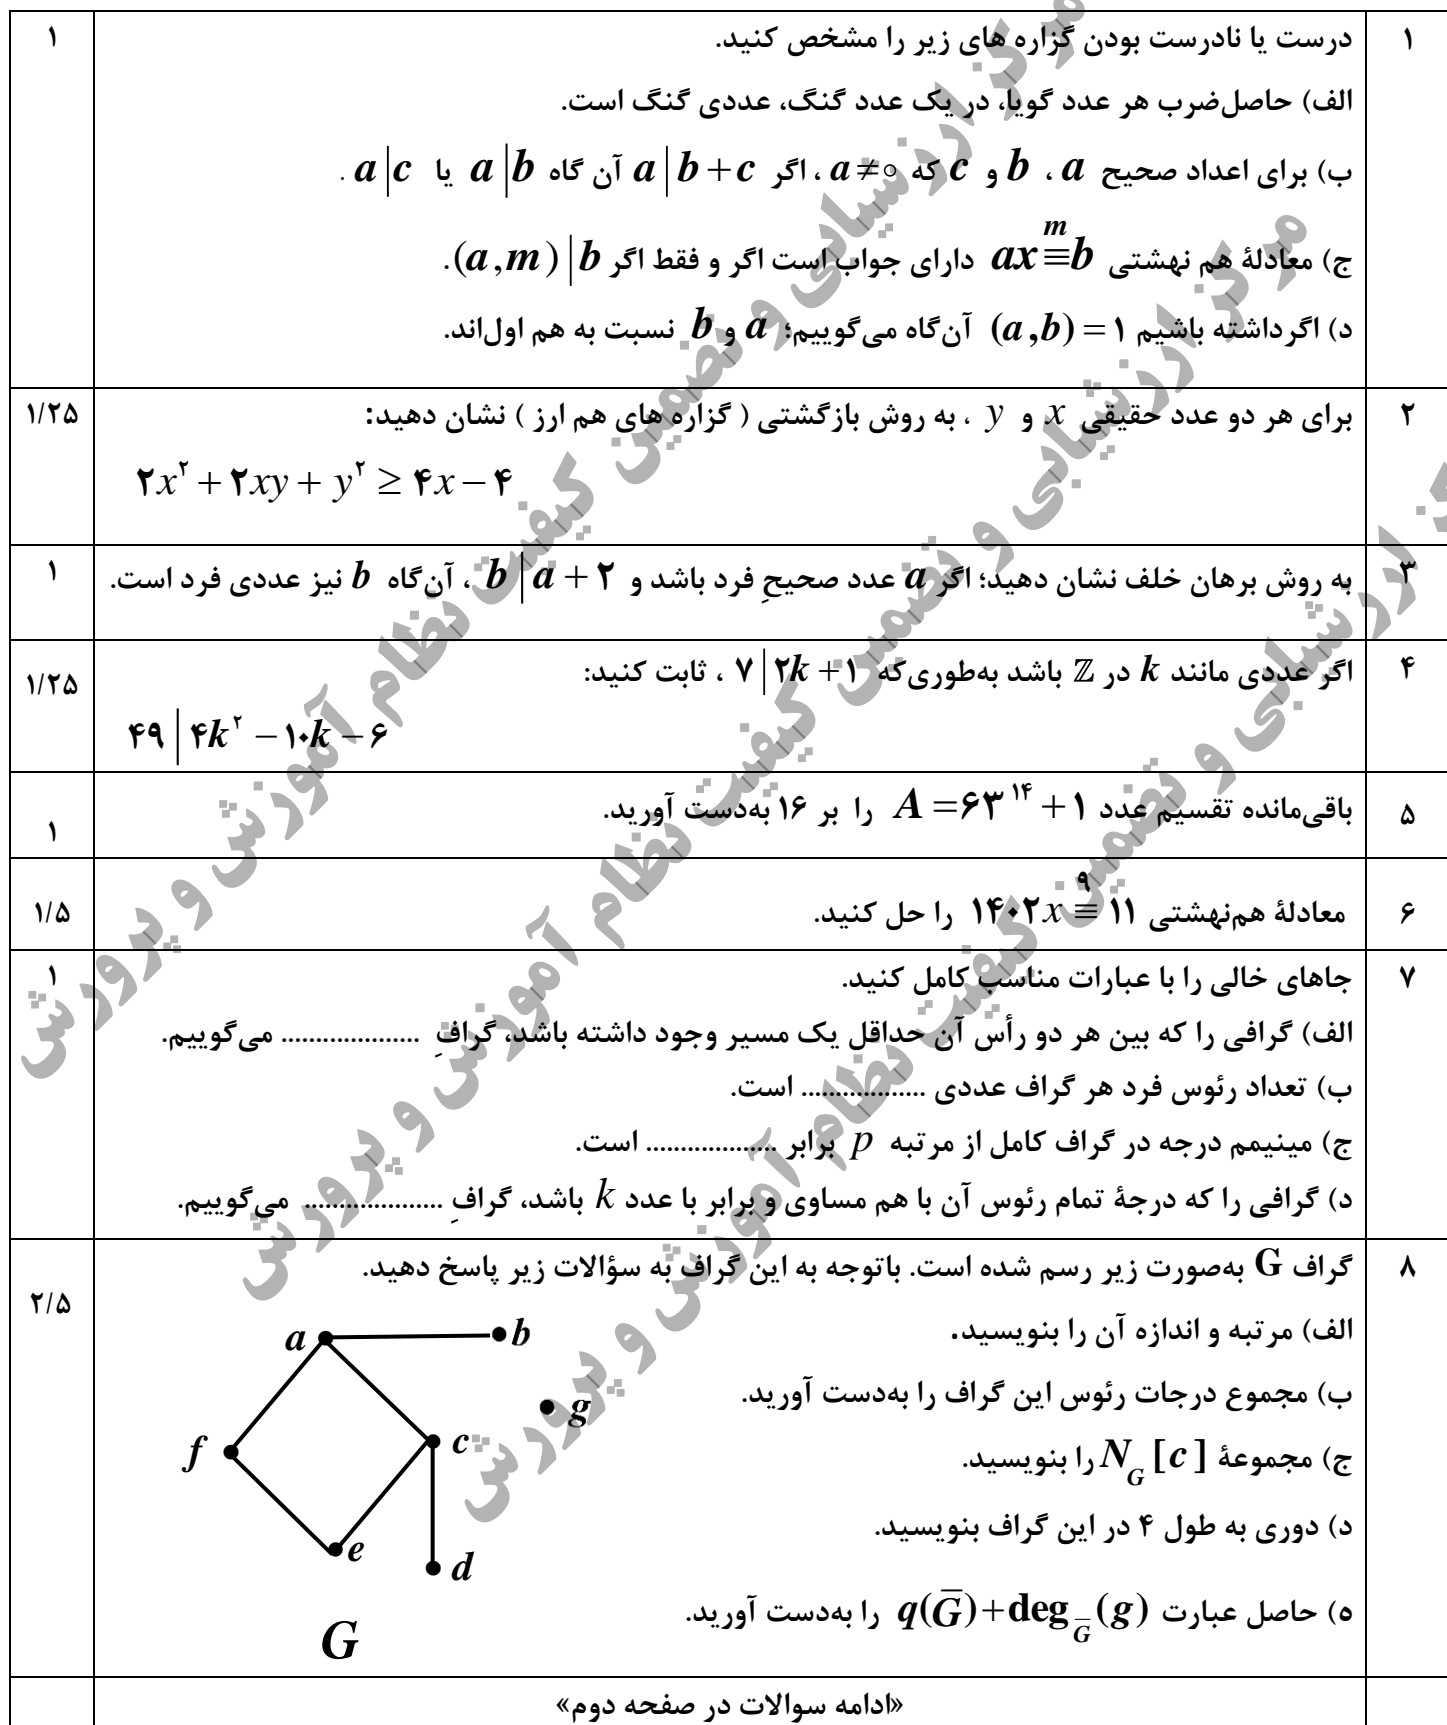 ۱ درست یا نادرست بودن گزاره های زیر را مشخص کنید. ۱
الف) حاصل‌ضرب هر عدد گویا، در یک عدد گنگ، عددی گنگ است.
ب) برای اعداد صحیح a ، b و c که a≠۰ ، اگر a|b+c آن گاه a|b یا a|c .
ج) معادلهٔ هم نهشتی ax ≡^m b دارای جواب است اگر و فقط اگر (a,m)|b.
د) اگرداشته باشیم (a,b)=۱ آن‌گاه می‌گوییم؛ a و b نسبت به هم اول‌اند.
۲ برای هر دو عدد حقیقی x و y ، به روش بازگشتی ( گزاره های هم ارز ) نشان دهید: ۱/۲۵
۲x^۲ + ۲xy + y^۲ ≥ ۴x − ۴
۳ به روش برهان خلف نشان دهید؛ اگر a عدد صحیحِ فرد باشد و b|a+۲ ، آن‌گاه b نیز عددی فرد است. ۱
۴ اگر عددی مانند k در ℤ باشد به‌طوری‌که ۷|۲k+۱ ، ثابت کنید: ۱/۲۵
۴۹|۴k^۲ − ۱۰k − ۶
۵ باقی‌مانده تقسیم عدد A = ۶۳^۱۴ + ۱ را بر ۱۶ به‌دست آورید. ۱
۶ معادلهٔ هم‌نهشتی ۱۴۰۲x ≡^۹ ۱۱ را حل کنید. ۱/۵
۷ جاهای خالی را با عبارات مناسب کامل کنید. ۱
الف) گرافی را که بین هر دو رأس آن حداقل یک مسیر وجود داشته باشد، گرافِ .................... می‌گوییم.
ب) تعداد رئوس فرد هر گراف عددی .................. است.
ج) مینیمم درجه در گراف کامل از مرتبه p برابر ................... است.
د) گرافی را که درجهٔ تمام رئوس آن با هم مساوی و برابر با عدد k باشد، گرافِ .................... می‌گوییم.
۸ گراف G به‌صورت زیر رسم شده است. باتوجه به این گراف به سؤالات زیر پاسخ دهید. ۲/۵
الف) مرتبه و اندازه آن را بنویسید.
ب) مجموع درجات رئوس این گراف را به‌دست آورید.
ج) مجموعهٔ N_G[c] را بنویسید.
د) دوری به طول ۴ در این گراف بنویسید.
ه) حاصل عبارت q(G̅)+deg_G̅(g) را به‌دست آورید.
a b
g
f c
e d
G
«ادامه سوالات در صفحه دوم»
مرکز ارزشیابی و تضمین کیفیت نظام آموزش و پرورش
مرکز ارزشیابی و تضمین کیفیت نظام آموزش و پرورش
مرکز ارزشیابی و تضمین کیفیت نظام آموزش و پرورش